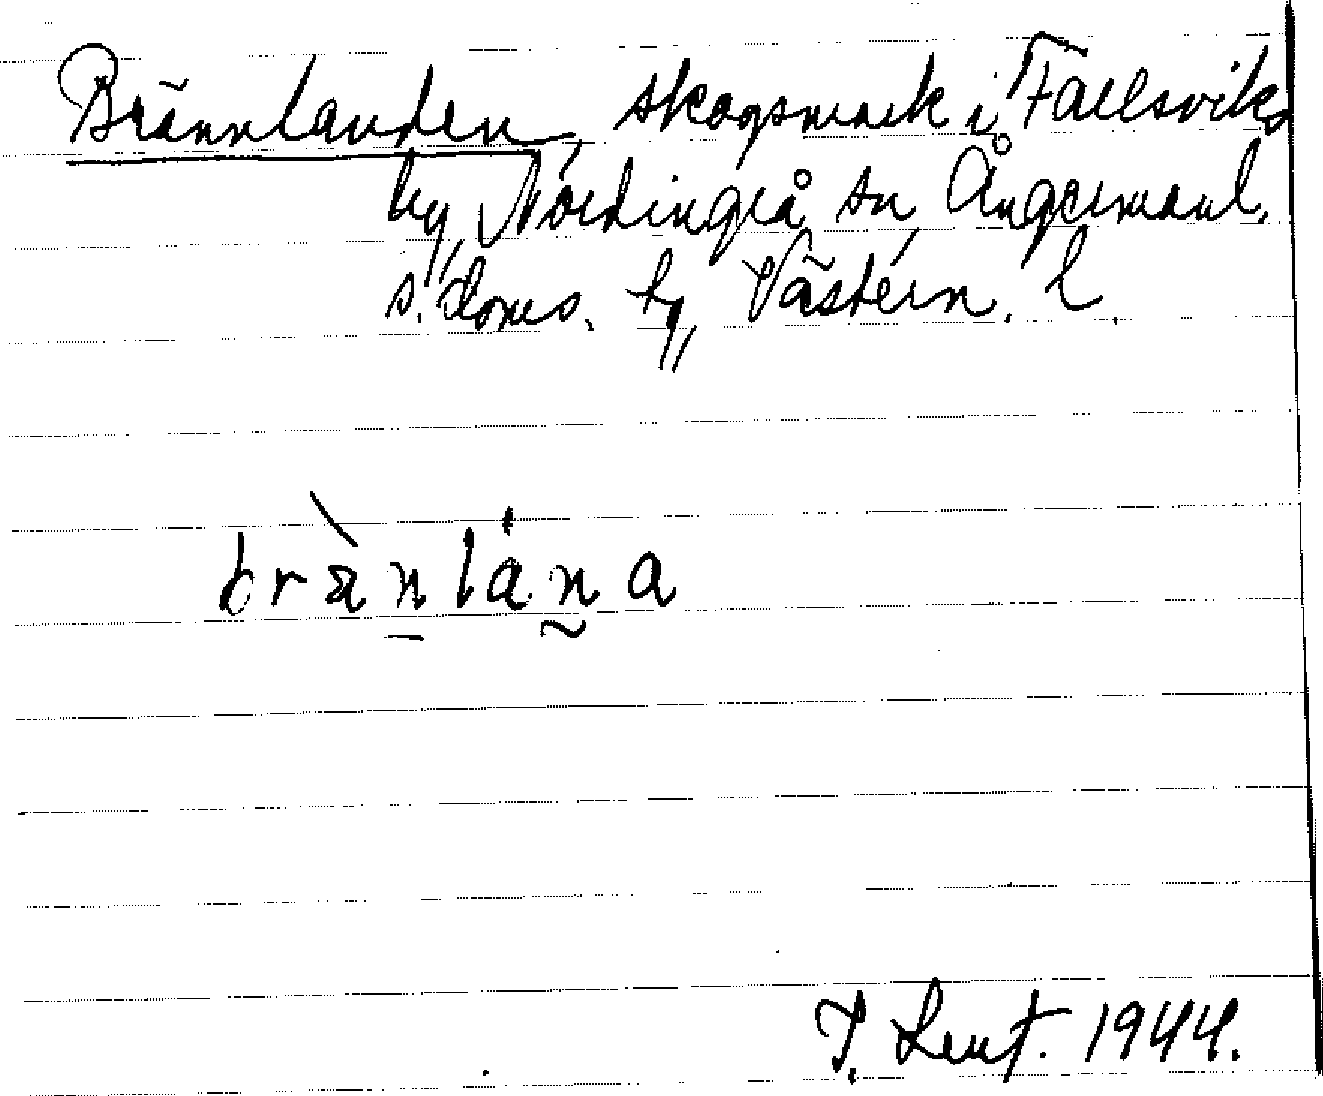 Brännlanden, skogsmark i Fällsviks
by, Nordingrå sn Ångermanl.
s. doms. hg, Västern. l.
brànlána
1944.